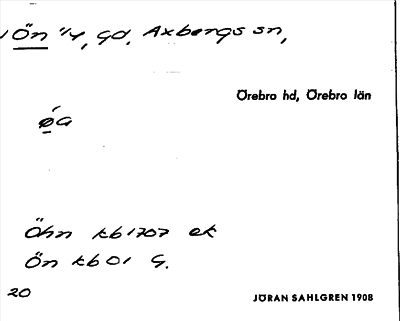 Ön 1/4, gd, Axbergs sn,
Örebro hd, Örebro län
ǿa
Öhn kb 1707 ek
Ön kb 01 G.
20
JÖRAN SAHLGREN 1908